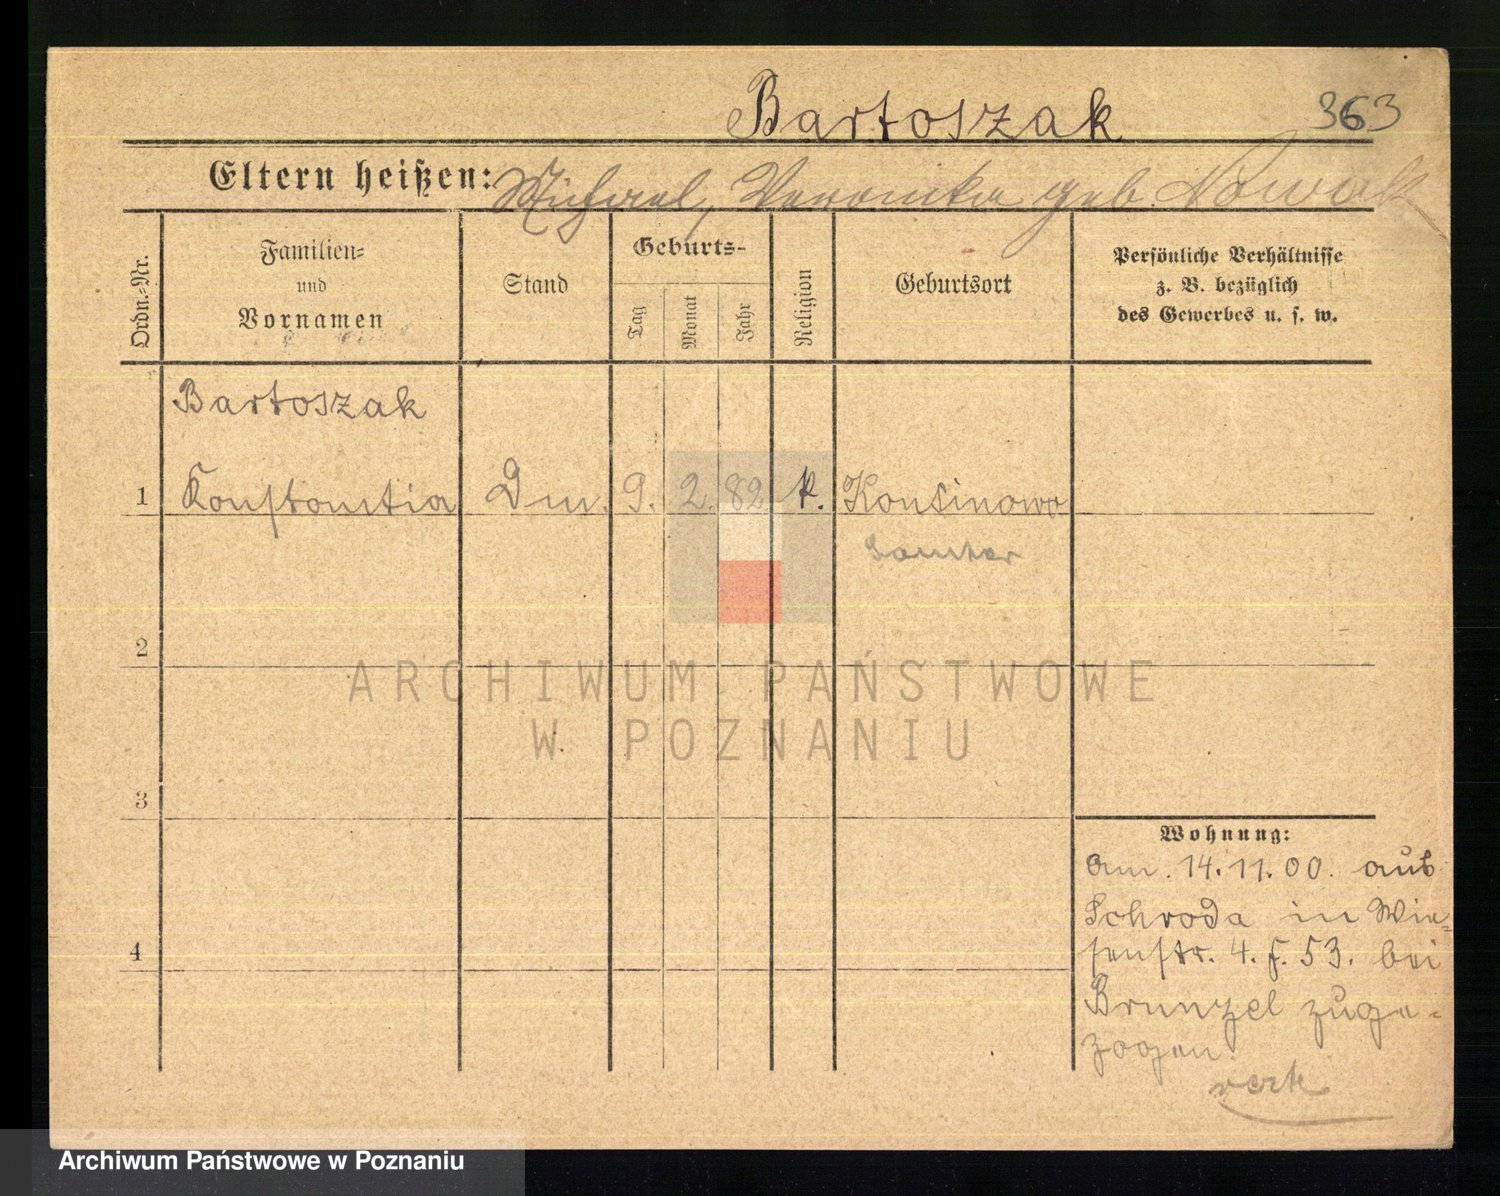 Bartoszak 363
Eltern heißen: Michael, Veronika geb. Nowak
Ordn.-Nr.
Familien-
und
Vornamen
Stand
Geburts-
Tag
Monat
Jahr
Religion
Geburtsort
Persönliche Verhältnisse
z. B. bezüglich
des Gewerbes u. s. w.
Bartoszak
1 Konstantia Dm. 9. 2. 82. k. Konsinowo
Samter
2
3
4
Wohnung:
Am. 14.11.00. aus
Schroda in Wie-
senstr. 4. f. 53. bei
Brunzel zuge-
zogen.
ARCHIWUM PAŃSTWOWE
W POZNANIU
Archiwum Państwowe w Poznaniu